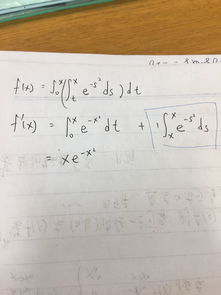 f(x) = ∫₀ˣ (∫ₜˣ e^{-s²} ds) dt
f'(x) = ∫₀ˣ e^{-x²} dt + 1∫ₓˣ e^{-s²} ds
= x e^{-x²}